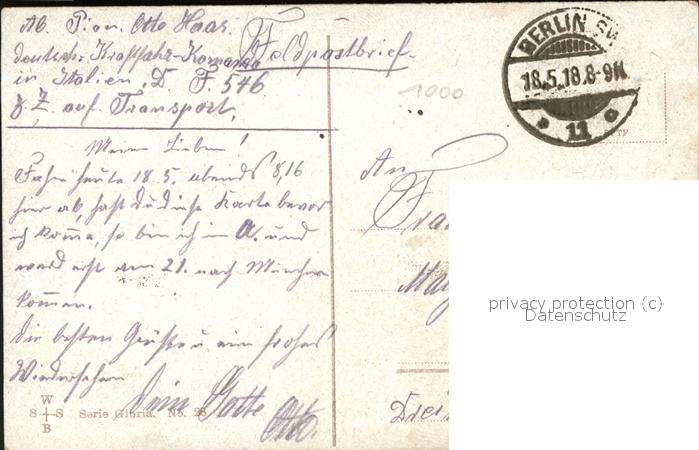 Ab. Pion. Otto Haas.
deutsch. Kraftfahr-Komando
in Italien, D. F. 546
z. Z. auf Transport.
Feldpostbrief.
BERLIN SW
18.5.18.8-9N
* 11 c
1000
Meine Lieben!
Fahre heute 18.5. abends 8,16
hier ab, hast du diese Karte bevor
ich komme, so bin ich in A. und
werd erst am 21. nach München
kommen.
Die besten Grüsse u. ein frohes
Wiedersehen
Dein Gatte
Otto.
An
Frau
Drei
W
S S
B
Serie Gloria. No. 28
privacy protection (c)
Datenschutz